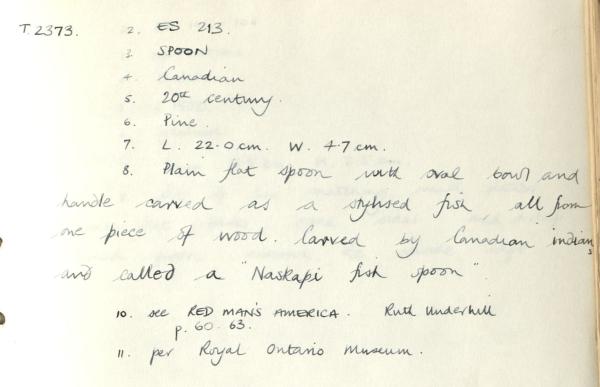 T.2373. 2. ES 213.
3. SPOON
4. Canadian
5. 20th century.
6. Pine.
7. L. 22.0cm. W. 4.7cm.
8. Plain flat spoon with oval bowl and
handle carved as a stylised fish all from
one piece of wood. Carved by Canadian indians
and called a "Naskapi fish spoon".
10. see RED MAN'S AMERICA. Ruth Underhill
p. 60-63.
11. per Royal Ontario Museum.